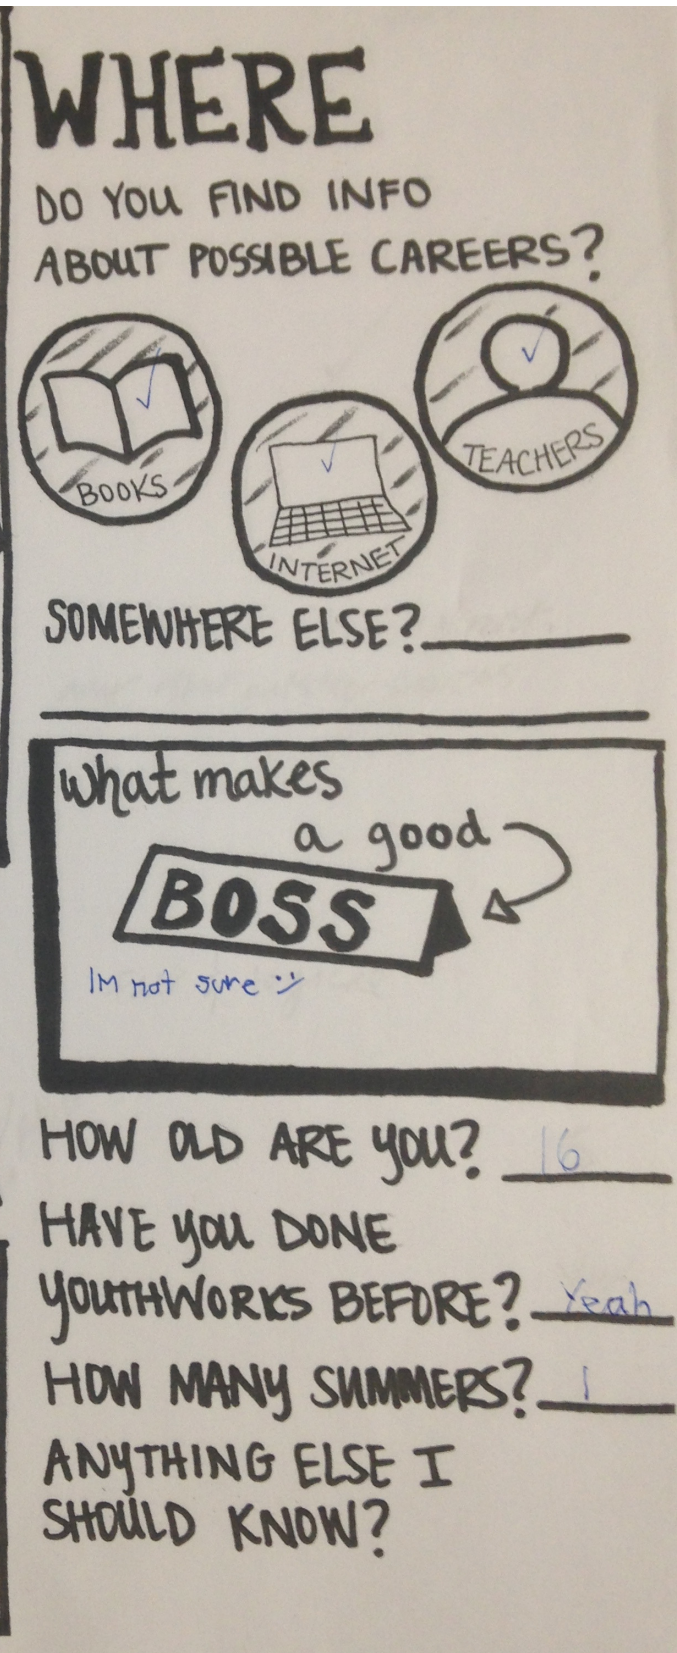 WHERE
DO YOU FIND INFO
ABOUT POSSIBLE CAREERS?
BOOKS
INTERNET
TEACHERS
SOMEWHERE ELSE?
what makes
a good
BOSS
Im not sure :)
HOW OLD ARE YOU? 16
HAVE YOU DONE
YOUTHWORKS BEFORE? Yeah
HOW MANY SUMMERS? 1
ANYTHING ELSE I
SHOULD KNOW?